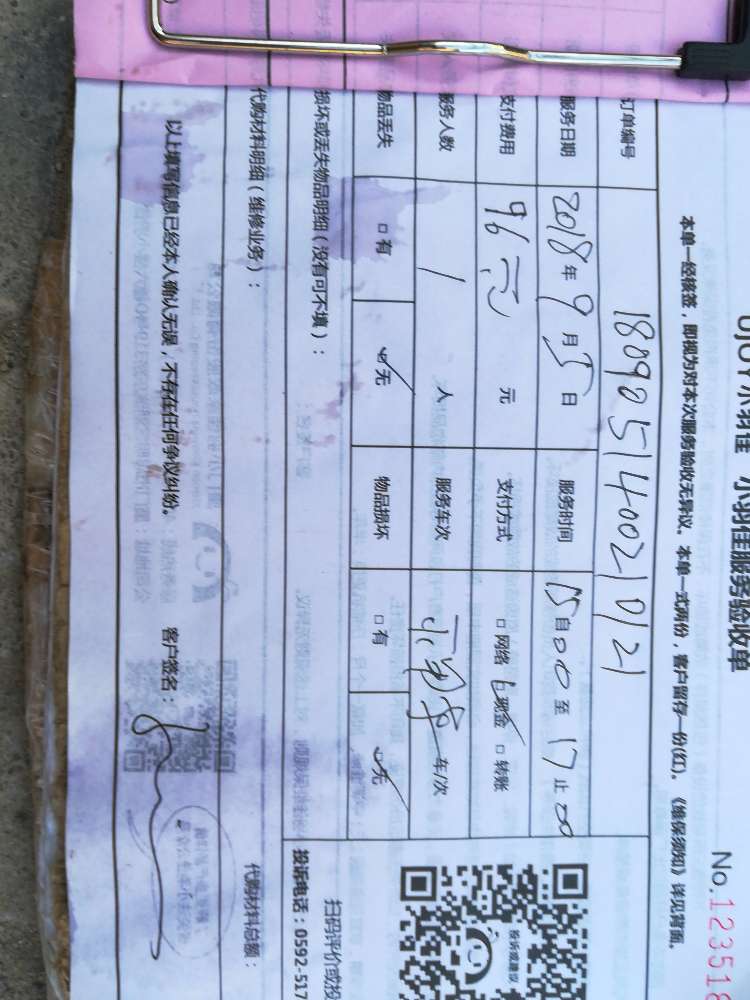 小羽佳服务验收单
No.123518
本单一经核签，即视为对本次服务验收无异议。本单一式两份，客户留存一份(红)。《维保须知》详见背面。
订单编号 1809051400210121
服务日期 2018年9月5日 服务时间 15自00至17止00
支付费用 96元 元 支付方式 □网络 现金 □转账
服务人数 1 人 服务车次 车/次
物品丢失 □有 无 物品损坏 □有 无
损坏或丢失物品明细（没有可不填）：
代购材料明细（维修业务）：
代购材料总额：
以上填写信息已经本人确认无误，不存在任何争议纠纷。 客户签名：
投诉或建议
扫码评价或投
投诉电话：0592-517